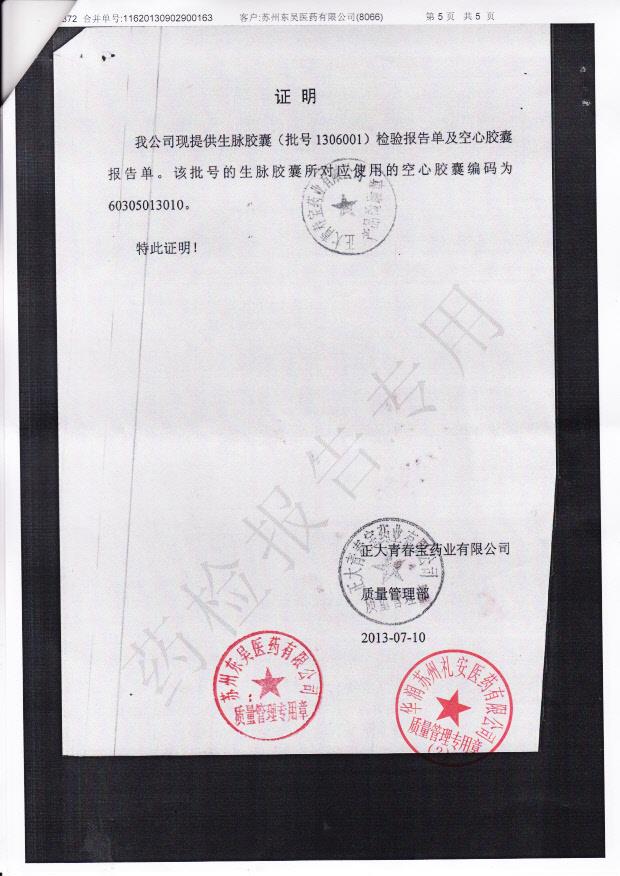 372 合并单号:11620130902900163 客户:苏州东吴医药有限公司(8066) 第 5 页 共 5 页
证 明
我公司现提供生脉胶囊（批号 1306001）检验报告单及空心胶囊
报告单。该批号的生脉胶囊所对应使用的空心胶囊编码为
60305013010。
特此证明！
正大青春宝药业有限公司
药检报告专用
正大青春宝药业有限公司
正大青春宝药业有限公司
质量管理部
2013-07-10
苏州东吴医药有限公司
质量管理专用章
华润苏州礼安医药有限公司
质量管理专用章
(2)